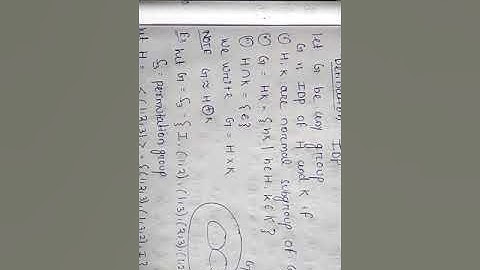 Definition IDP
Let G be any group
G is IDP of H and K if
① H, K are normal subgroup of G
② G = HK = {hk | h∈H, k∈K}
③ H∩K = {e}
We write G = H × K
NOTE G ≈ H ⊕ K
Eg Let G = S₃ = {I, (1,2), (1,3), (2,3), (1,2
S₃ = permutation group
let H = < (1,2,3) > = {(1,2,3), (1,3,2), I}